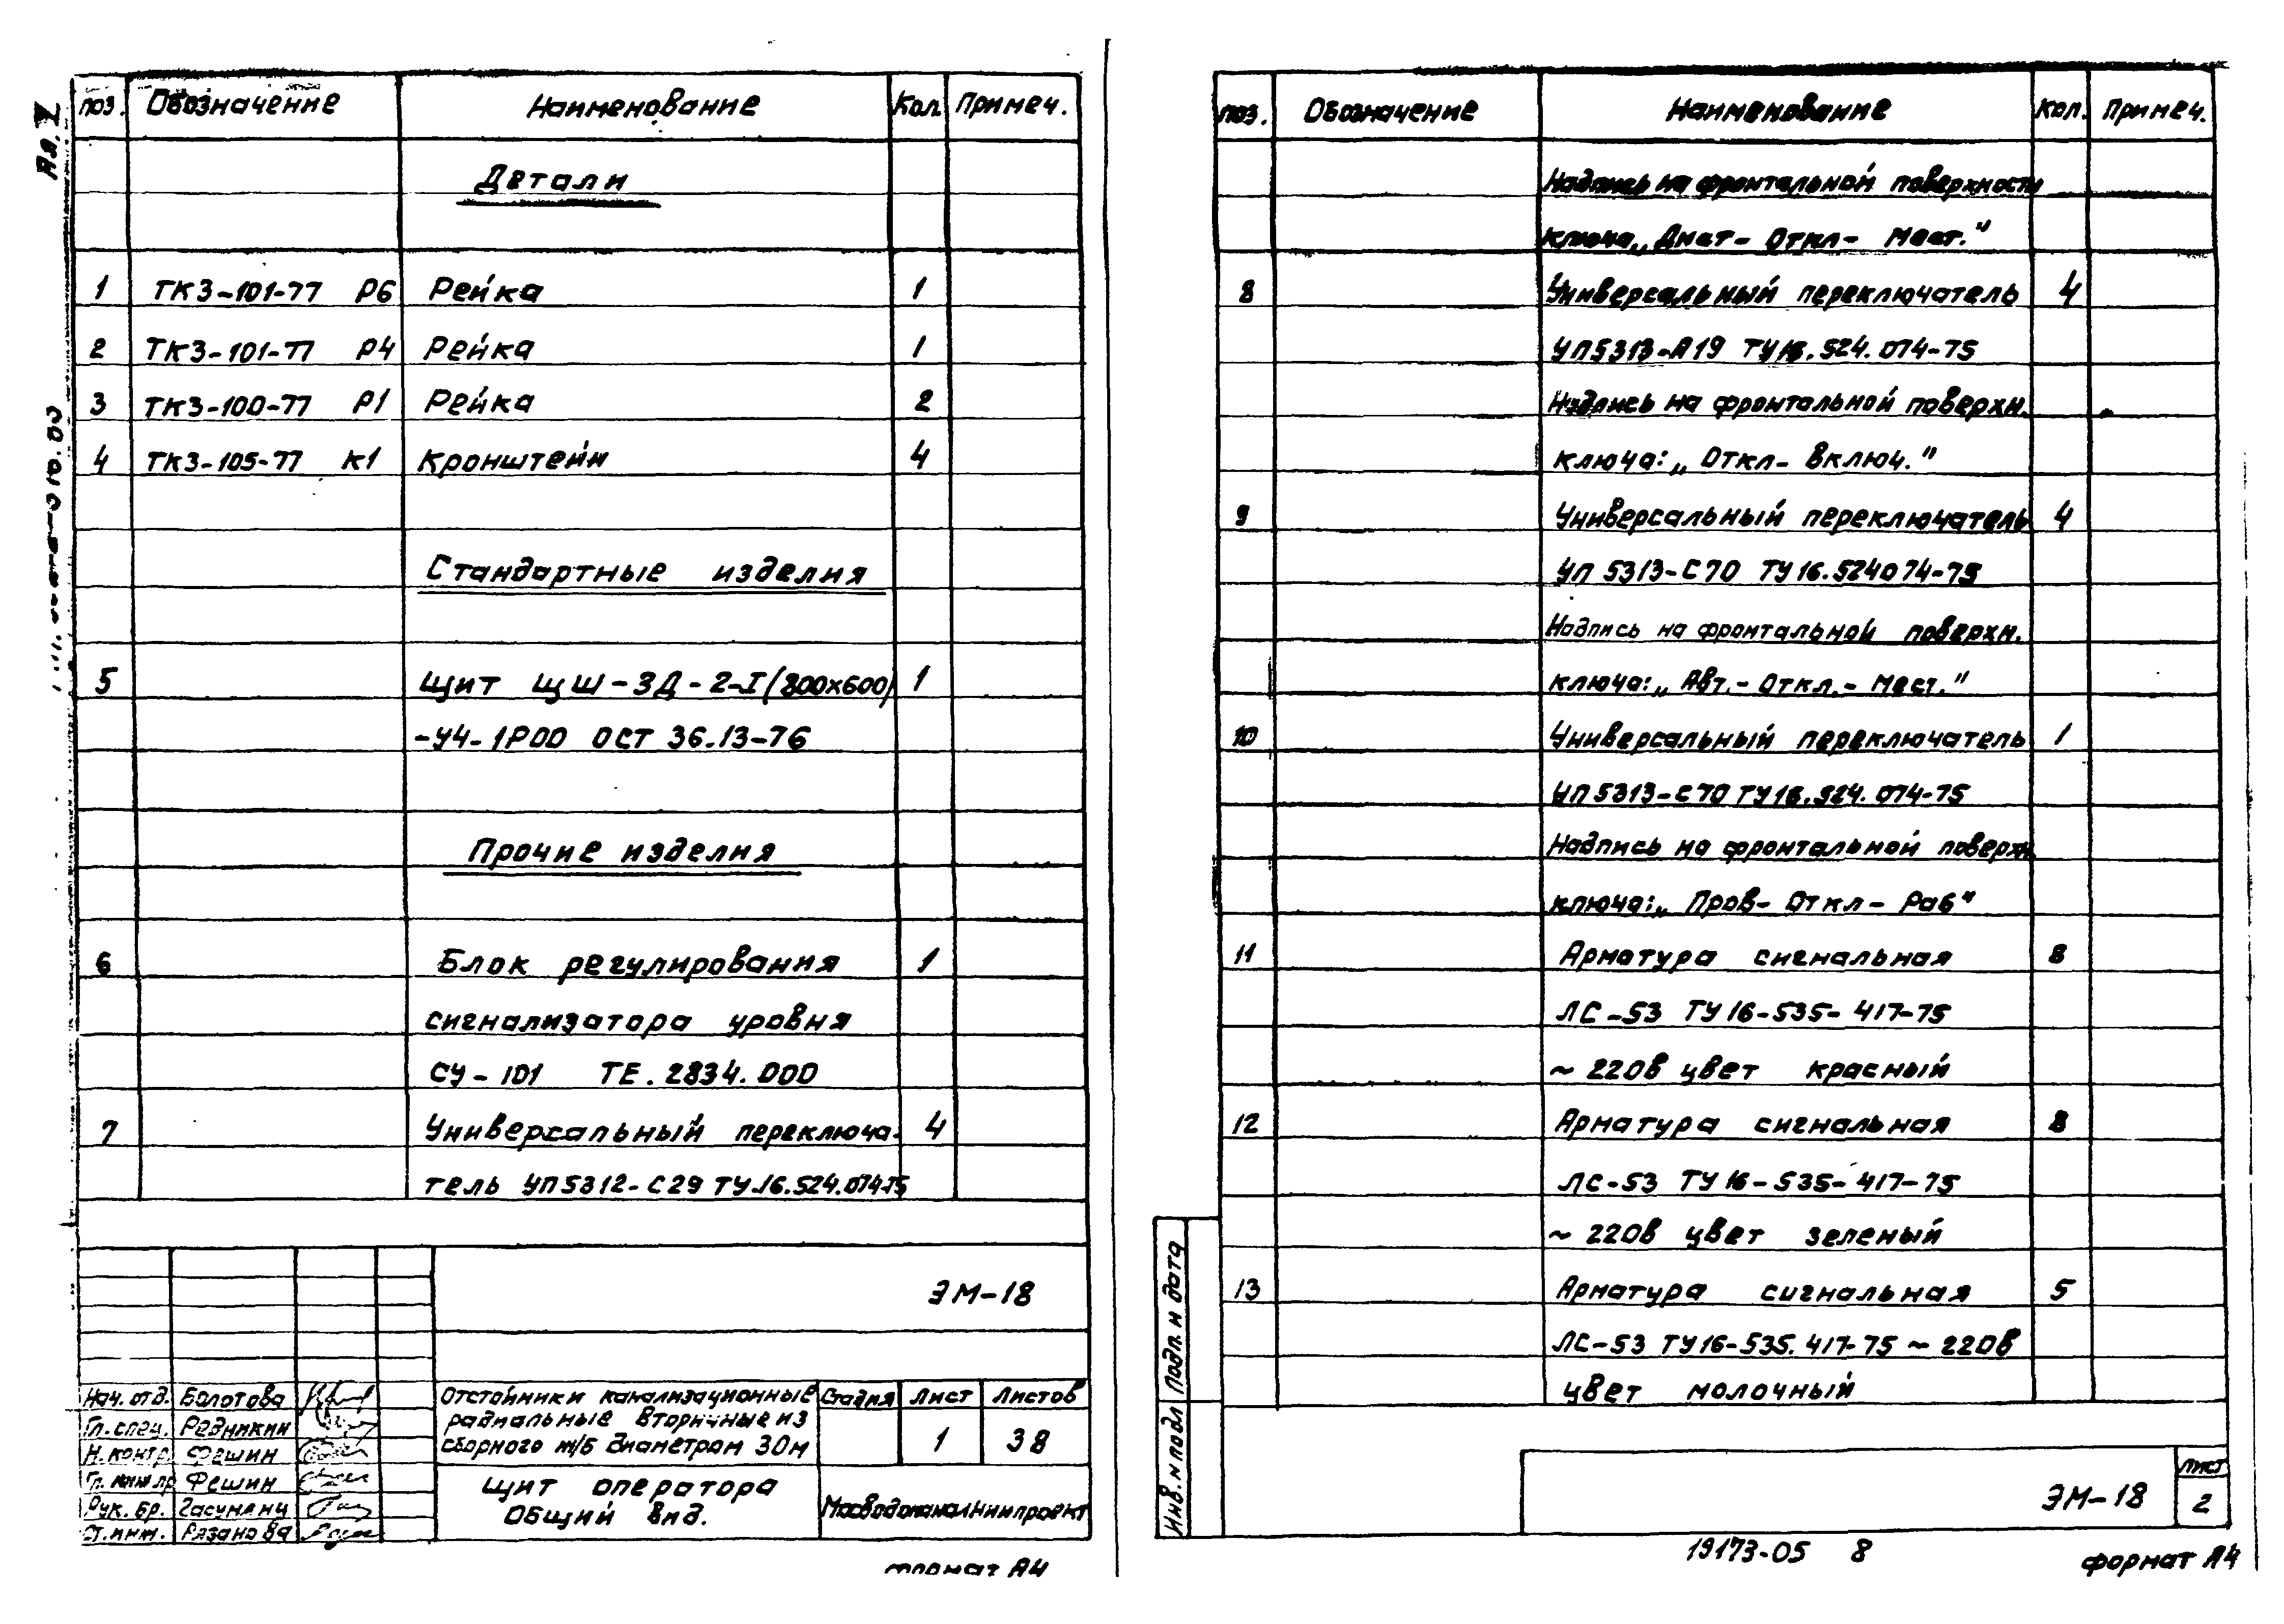 Ал. V
поз. Обозначение Наименование Кол. Примеч.
Детали
1 ТК3-101-77 Р6 Рейка 1
2 ТК3-101-77 Р4 Рейка 1
3 ТК3-100-77 Р1 Рейка 2
4 ТК3-105-77 К1 Кронштейн 4
Стандартные изделия
5 Щит ЩШ-ЗД-2-I(800х600) 1
-У4-1Р00 ОСТ 36.13-76
Прочие изделия
6 Блок регулирования 1
сигнализатора уровня
СУ-101 ТЕ.2834.000
7 Универсальный переключа- 4
тель УП5312-С29 ТУ.16.524.074-75
ЭМ-18
Нач. отд. Болотова
Гл. спец. Редникин
Н. контр. Фешин
Фешин
Рук. бр.
Ст. инж. Рязанова
Отстойники канализационные
радиальные вторичные из
сборного ж/б диаметром 30м
Щит оператора
Общий вид.
Стадия Лист Листов
1 38
МосводоканалНИИпроект
формат А4
поз. Обозначение Наименование Кол. Примеч.
Надпись на фронтальной поверхности
ключа „Дист- Откл- Мест."
8 Универсальный переключатель 4
УП5313-А19 ТУ16.524.074-75
Надпись на фронтальной поверхн.
ключа: „Откл- Включ."
9 Универсальный переключатель 4
УП 5313-С70 ТУ16.524074-75
Надпись на фронтальной поверхн.
ключа: „Авт.- Откл.- Мест."
10 Универсальный переключатель 1
УП5313-С70 ТУ16.524.074-75
Надпись на фронтальной поверхн
ключа: „Пров- Откл- Раб"
11 Арматура сигнальная 8
ЛС-53 ТУ16-535-417-75
~ 220в цвет красный
12 Арматура сигнальная 8
ЛС-53 ТУ16-535-417-75
~ 220в цвет зеленый
13 Арматура сигнальная 5
ЛС-53 ТУ16-535.417-75 ~ 220в
цвет молочный
Подп. и дата
Инв. н подл
ЭМ-18
лист
2
19173-05 8
формат А4